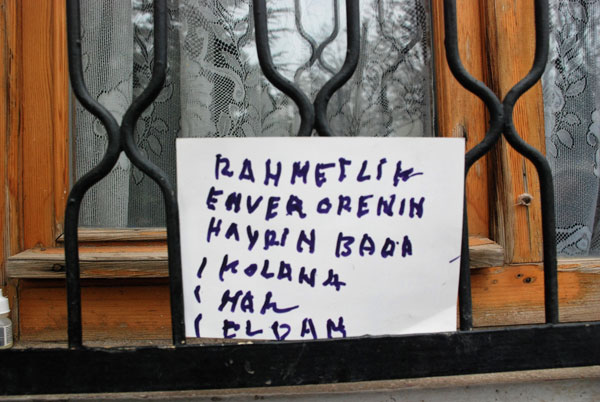 RAHMETLİK
ENVER ORENIN
HAYRIN BABA
1 KOLANA
1 HAK
1 ELVAM